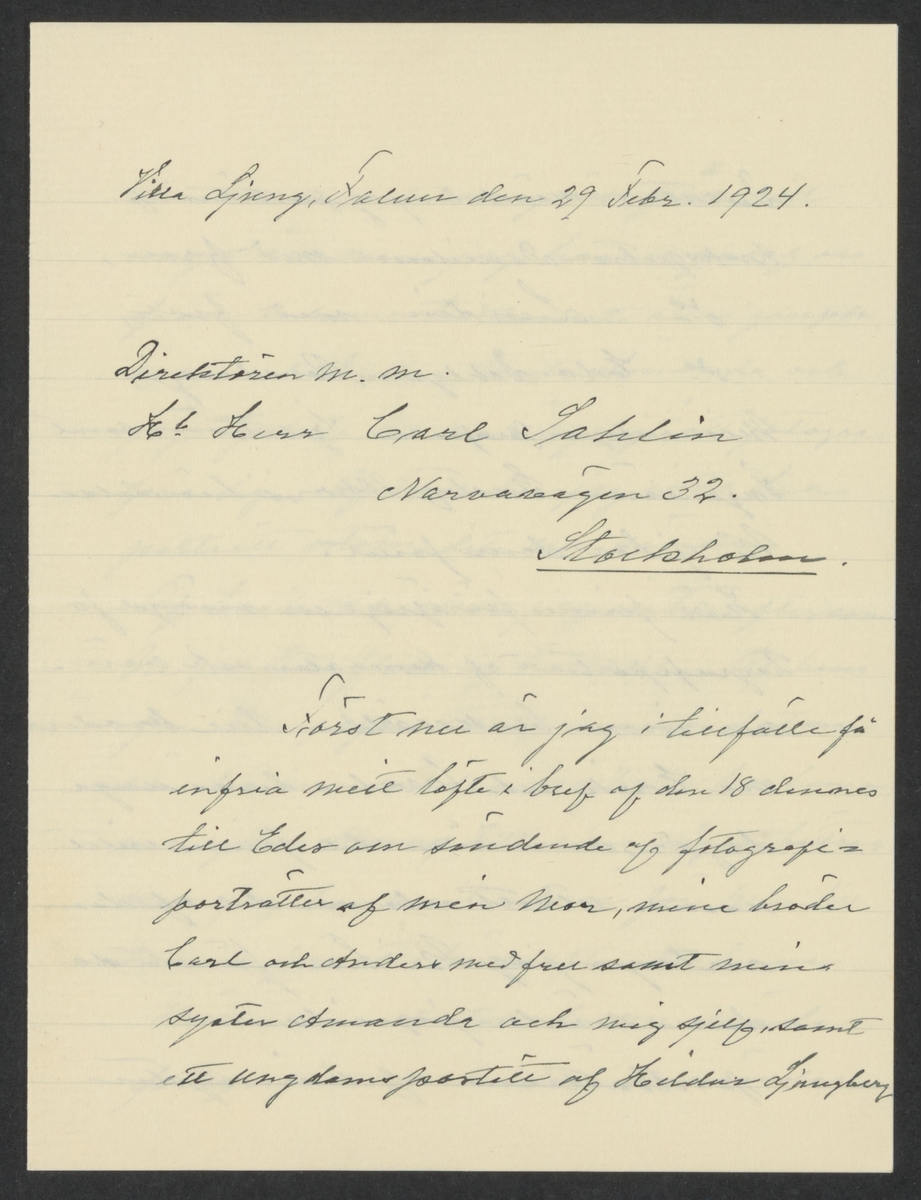 Villa Ljung, Falun den 29 Febr. 1924.
Direktören m. m.
Hr Herr Carl Sahlin
Narvavägen 32.
Stockholm.
Först nu är jag i tillfälle få
infria mitt löfte i bref af den 18 dennes
till Eder om sändende af fotografi=
porträtter af min Mor, mine bröder
Carl och Anders med fru samt mina
syster Amanda och mig sjelf, samt
ett ungdoms portätt af Hildur Ljungberg